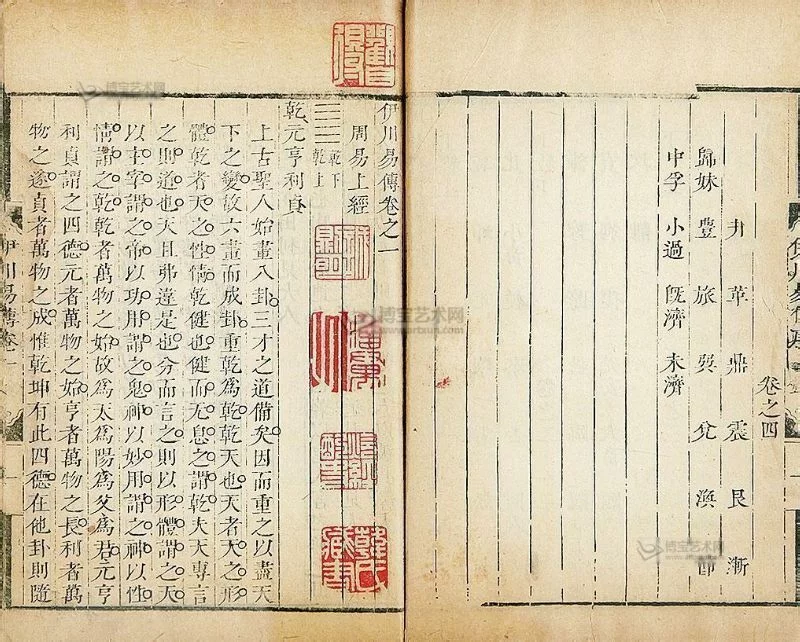 卷之四
井 革 鼎 震 艮 漸
歸妹 豐 旅 巽 兌 渙 節
中孚 小過 旣濟 未濟
伊川易傳卷之一
周易上經
乾下
乾上
乾元亨利貞
上古聖人始畫八卦三才之道備矣因而重之以盡天
下之變故六畫而成卦重乾爲乾乾天也天者天之形
體乾者天之性情乾健也健而无息之謂乾夫天專言
之則道也天且弗違是也分而言之則以形體謂之天
以主宰謂之帝以功用謂之鬼神以妙用謂之神以性
情謂之乾乾者萬物之始故爲天爲陽爲父爲君元亨
利貞謂之四德元者萬物之始亨者萬物之長利者萬
物之遂貞者萬物之成惟乾坤有此四德在他卦則隨
伊川易傳卷一
韓氏藏書
博宝艺术网
www.artxun.com
博宝艺术网